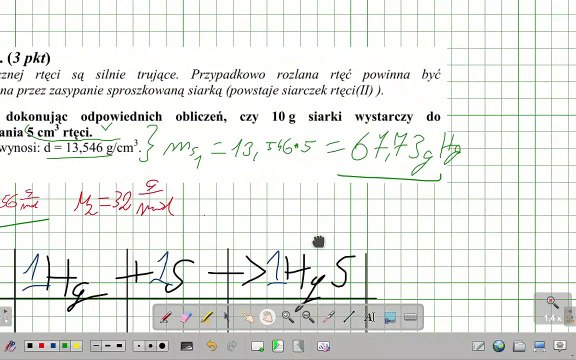 . (3 pkt)
cznej rtęci są silnie trujące. Przypadkowo rozlana rtęć powinna być
na przez zasypanie sproszkowaną siarką (powstaje siarczek rtęci(II) ).
dokonując odpowiednich obliczeń, czy 10 g siarki wystarczy do
ania 5 cm³ rtęci.
wynosi: d = 13,546 g/cm³. } ms₁ = 13,546·5 = 67,73g Hg
56 g/mol M₂=32 g/mol
1Hg + 1S → 1HgS
1.4 x